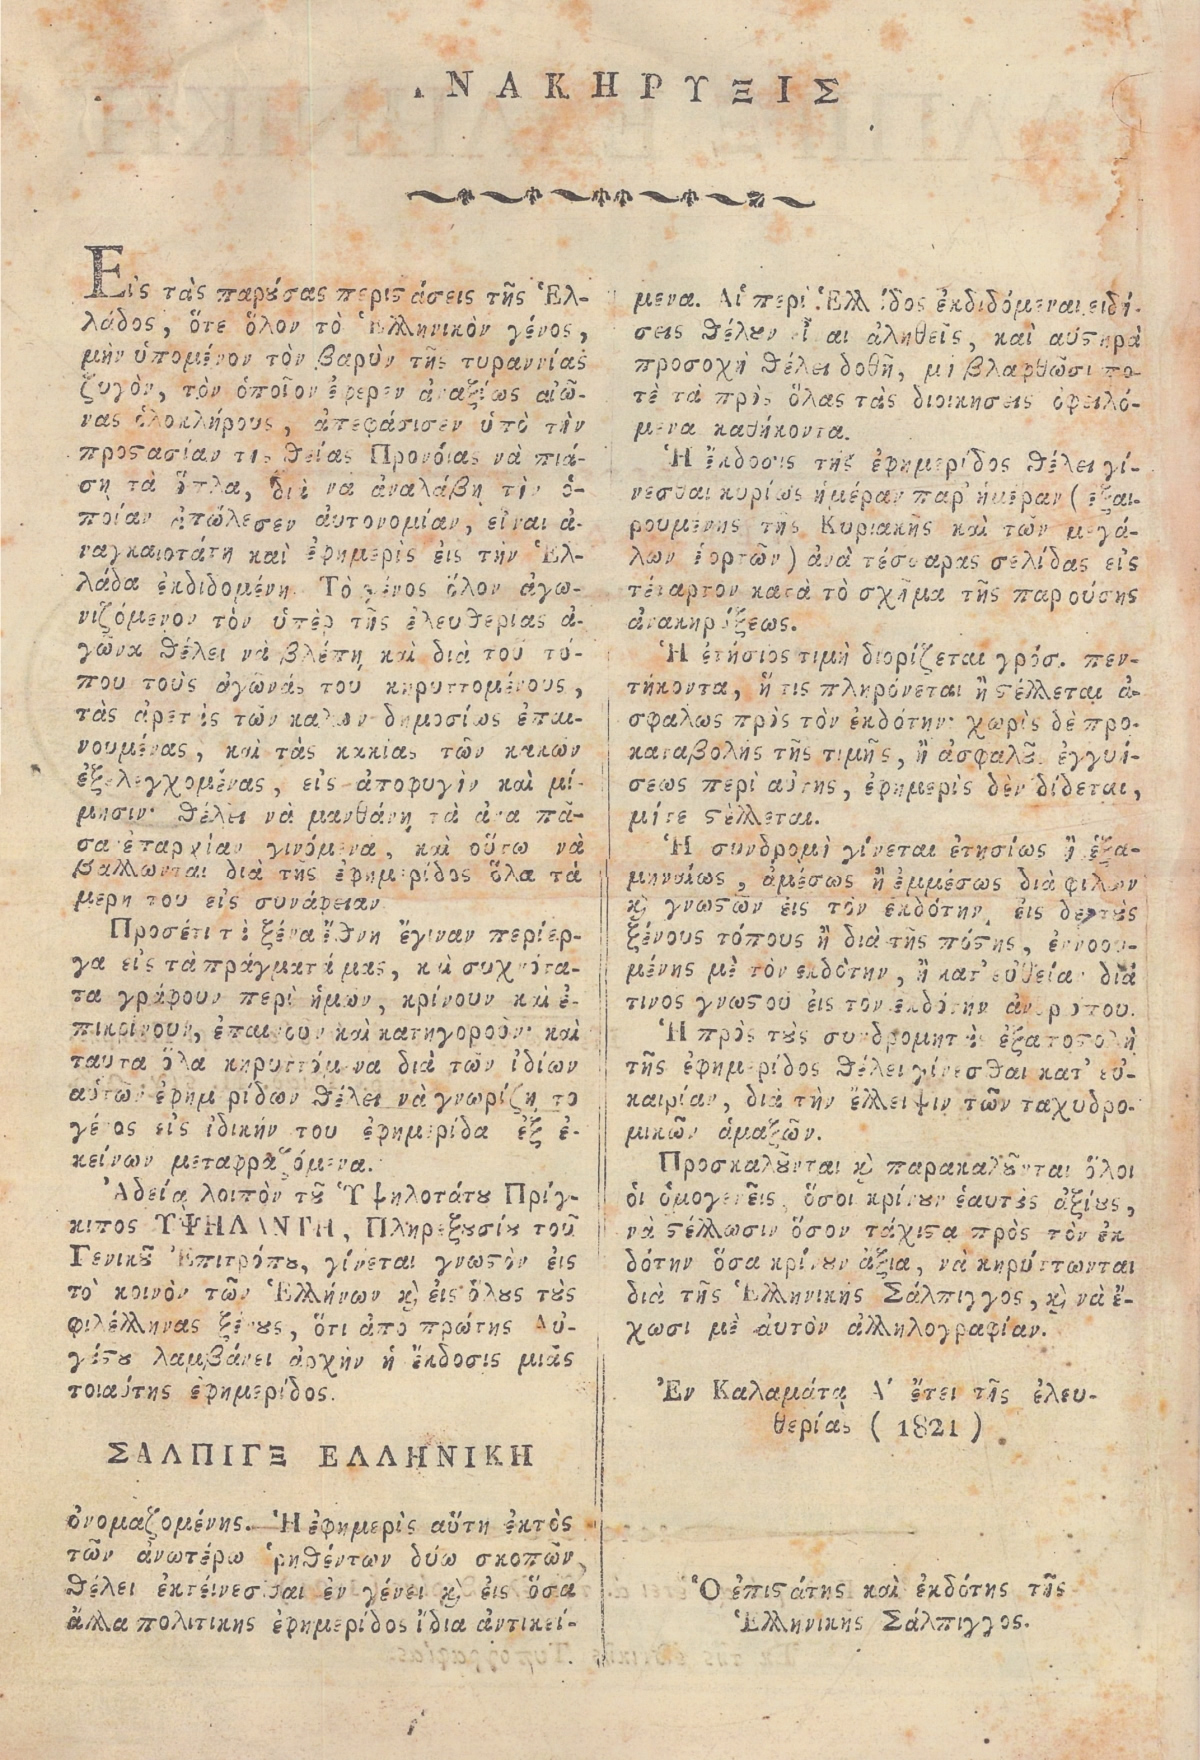 ΑΝΑΚΗΡΥΞΙΣ
Εἰς τὰς παρȣ́σας περιϛάσεις τῆς Ἑλ-
λάδος, ὅτε ὅλον τὸ Ἑλληνικὸν γένος,
μὴν ὑπομένον τὸν βαρὺν τῆς τυραννίας
ζυγὸν, τὸν ὁποῖον ἔφερεν ἀναξίως αἰῶ-
νας ὁλοκλήρους, ἀπεφάσισεν ὑπὸ τὴν
προϛασίαν της θείας Προνοίας νὰ πιά-
ση τὰ ὅπλα, διὰ νὰ ἀναλάβῃ τὴν ὁ-
ποίαν ἀπώλεσεν αὐτονομίαν, εἶναι ἀ-
ναγκαιοτάτη καὶ ἐφημερὶς εἰς τὴν Ἑλ-
λάδα ἐκδιδομένη. Τὸ γένος ὅλον ἀγω-
νιζόμενον τὸν ὑπὲρ τῆς ἐλευθερίας ἀ-
γῶνα θέλει νὰ βλέπῃ καὶ διὰ τοῦ τύ-
που τοὺς ἀγῶνάς του κηρυττομένους,
τὰς ἀρετὰς τῶν καλῶν δημοσίως ἐπαι-
νουμένας, καὶ τὰς κακίας τῶν κακῶν
ἐξελεγχομένας, εἰς ἀποφυγὴν καὶ μί-
μησιν· θέλει νὰ μανθάνῃ τὰ ἀνα πᾶ-
σαν ἐπαρχίαν γινόμενα, καὶ οὕτω νὰ
βάλλωνται διὰ τῆς ἐφημερίδος ὅλα τὰ
μερη του εἰς συνάφειαν
Προσέτι τὰ ξένα ἔθνη ἔγιναν περίερ-
γα εἰς τὰ πράγματά μας, καὶ συχνότα-
τα γράφουν περὶ ἡμῶν, κρίνουν καὶ ἐ-
πικρίνουν, ἐπαινοῦν καὶ κατηγοροῦν· καὶ
ταυτα ὅλα κηρυττόμενα διὰ τῶν ἰδίων
αὑτῶν ἐφημερίδων θέλει νὰ γνωρίζῃ το
γένος εἰς ἰδικήν του ἐφημερίδα ἐξ ἐ-
κείνων μεταφραζόμενα.
Ἀδείᾳ λοιπὸν τȣ͂ Ὑψηλοτάτȣ Πρίγ-
κιπος ΥΨΗΛΑΝΤΗ, Πληρεξȣσίȣ τοῦ
Γενικȣ͂ Ἐπιτρόπȣ, γίνεται γνωϛὸν εἰς
τὸ κοινὸν τῶν Ἑλλήνων ϗ εἰς ὅλȣς τȣ̀ς
φιλέλληνας ξένȣς, ὅτι ἀπὸ πρώτης Αὐ-
γȣ́ϛȣ λαμβάνει ἀρχὴν ἡ ἔκδοσις μιᾶς
τοιαύτης ἐφημερίδος.
ΣΑΛΠΙΓΞ ΕΛΛΗΝΙΚΗ
ὀνομαζομένης. Ἡ ἐφημερὶς αὕτη ἐκτὸς
τῶν ἀνωτέρω ῥηθέντων δύω σκοπῶν,
θέλει ἐκτείνεσθαι ἐν γένει ϗ εἰς ὅσα
ἄλλα πολιτικης ἐφημερίδος ἴδια ἀντικεί-
μενα. Αἱ περὶ Ἑλλάδος ἐκδιδόμεναι εἰδή-
σεις θέλȣν εἶναι ἀληθεῖς, καὶ αὐϛηρὰ
προσοχὴ θέλει δοθῆ, μὴ βλαφθῶσι πο-
τὲ τὰ πρὸς ὅλας τὰς διοικησεις ὀφειλό-
μενα καθήκοντα.
Ἡ ἔκδοσις τῆς ἐφημερίδος θέλει γί-
νεσθαι κυρίως ἡμέραν παρ' ἡμέραν (ἐξαι-
ρουμένης τῆς Κυριακῆς καὶ τῶν μεγά-
λων ἑορτῶν) ἀνὰ τέσσαρας σελίδας εἰς
τέταρτον κατὰ τὸ σχῆμα τῆς παρούσης
ἀνακηρύξεως.
Ἡ ἐτήσιος τιμὴ διορίζεται γρόσ. πεν-
τήκοντα, ἥτις πληρόνεται ἢ ϛέλλεται ἀ-
σφαλως πρὸς τὸν ἐκδότην· χωρὶς δὲ προ-
καταβολῆς τῆς τιμῆς, ἢ ἀσφαλȣ͂ς ἐγγυή-
σεως περὶ αὐτῆς, ἐφημερὶς δὲν δίδεται,
μήτε ϛέλλεται.
Ἡ συνδρομὴ γίνεται ἐτησίως ἢ ἑξα-
μηνιαίως, ἀμέσως ἢ ἐμμέσως διὰ φιλων
ϗ γνωϛῶν εἰς τὸν ἐκδότην, εἰς δὲ τȣ̀ς
ξένους τόπους ἢ διὰ τῆς πόϛης, ἐννοου-
μένης μὲ τὸν ἐκδότην, ἢ κατ' εὐθεῖαν διὰ
τινος γνωϛοῦ εἰς τον ἐκδότην ἀνθρώπου.
Ἡ πρὸς τȣ̀ς συνδρομητὰς ἐξαποϛολὴ
τῆς ἐφημερίδος θέλει γίνεσθαι κατ' εὐ-
καιρίαν, διὰ τὴν ἔλλειψιν τῶν ταχυδρο-
μικῶν ἁμαξῶν.
Προσκαλȣ͂νται ϗ παρακαλȣ͂νται ὅλοι
οἱ ὁμογενεῖς, ὅσοι κρίνȣν ἑαυτȣ̀ς ἀξίȣς,
νὰ ϛέλλωσιν ὅσον τάχιϛα πρὸς τὸν ἐκ
δότην ὅσα κρίνȣν ἄξια, νὰ κηρύττωνται
διὰ τῆς Ἑλληνικῆς Σάλπιγγος, ϗ νὰ ἔ-
χωσι μὲ αὐτὸν ἀλληλογραφίαν.
Ἐν Καλαμάτᾳ Α' ἔτει τῆς ἐλευ-
θερίας (1821)
Ὁ ἐπιϛάτης καὶ ἐκδότης τῆς
Ἑλληνικῆς Σάλπιγγος.